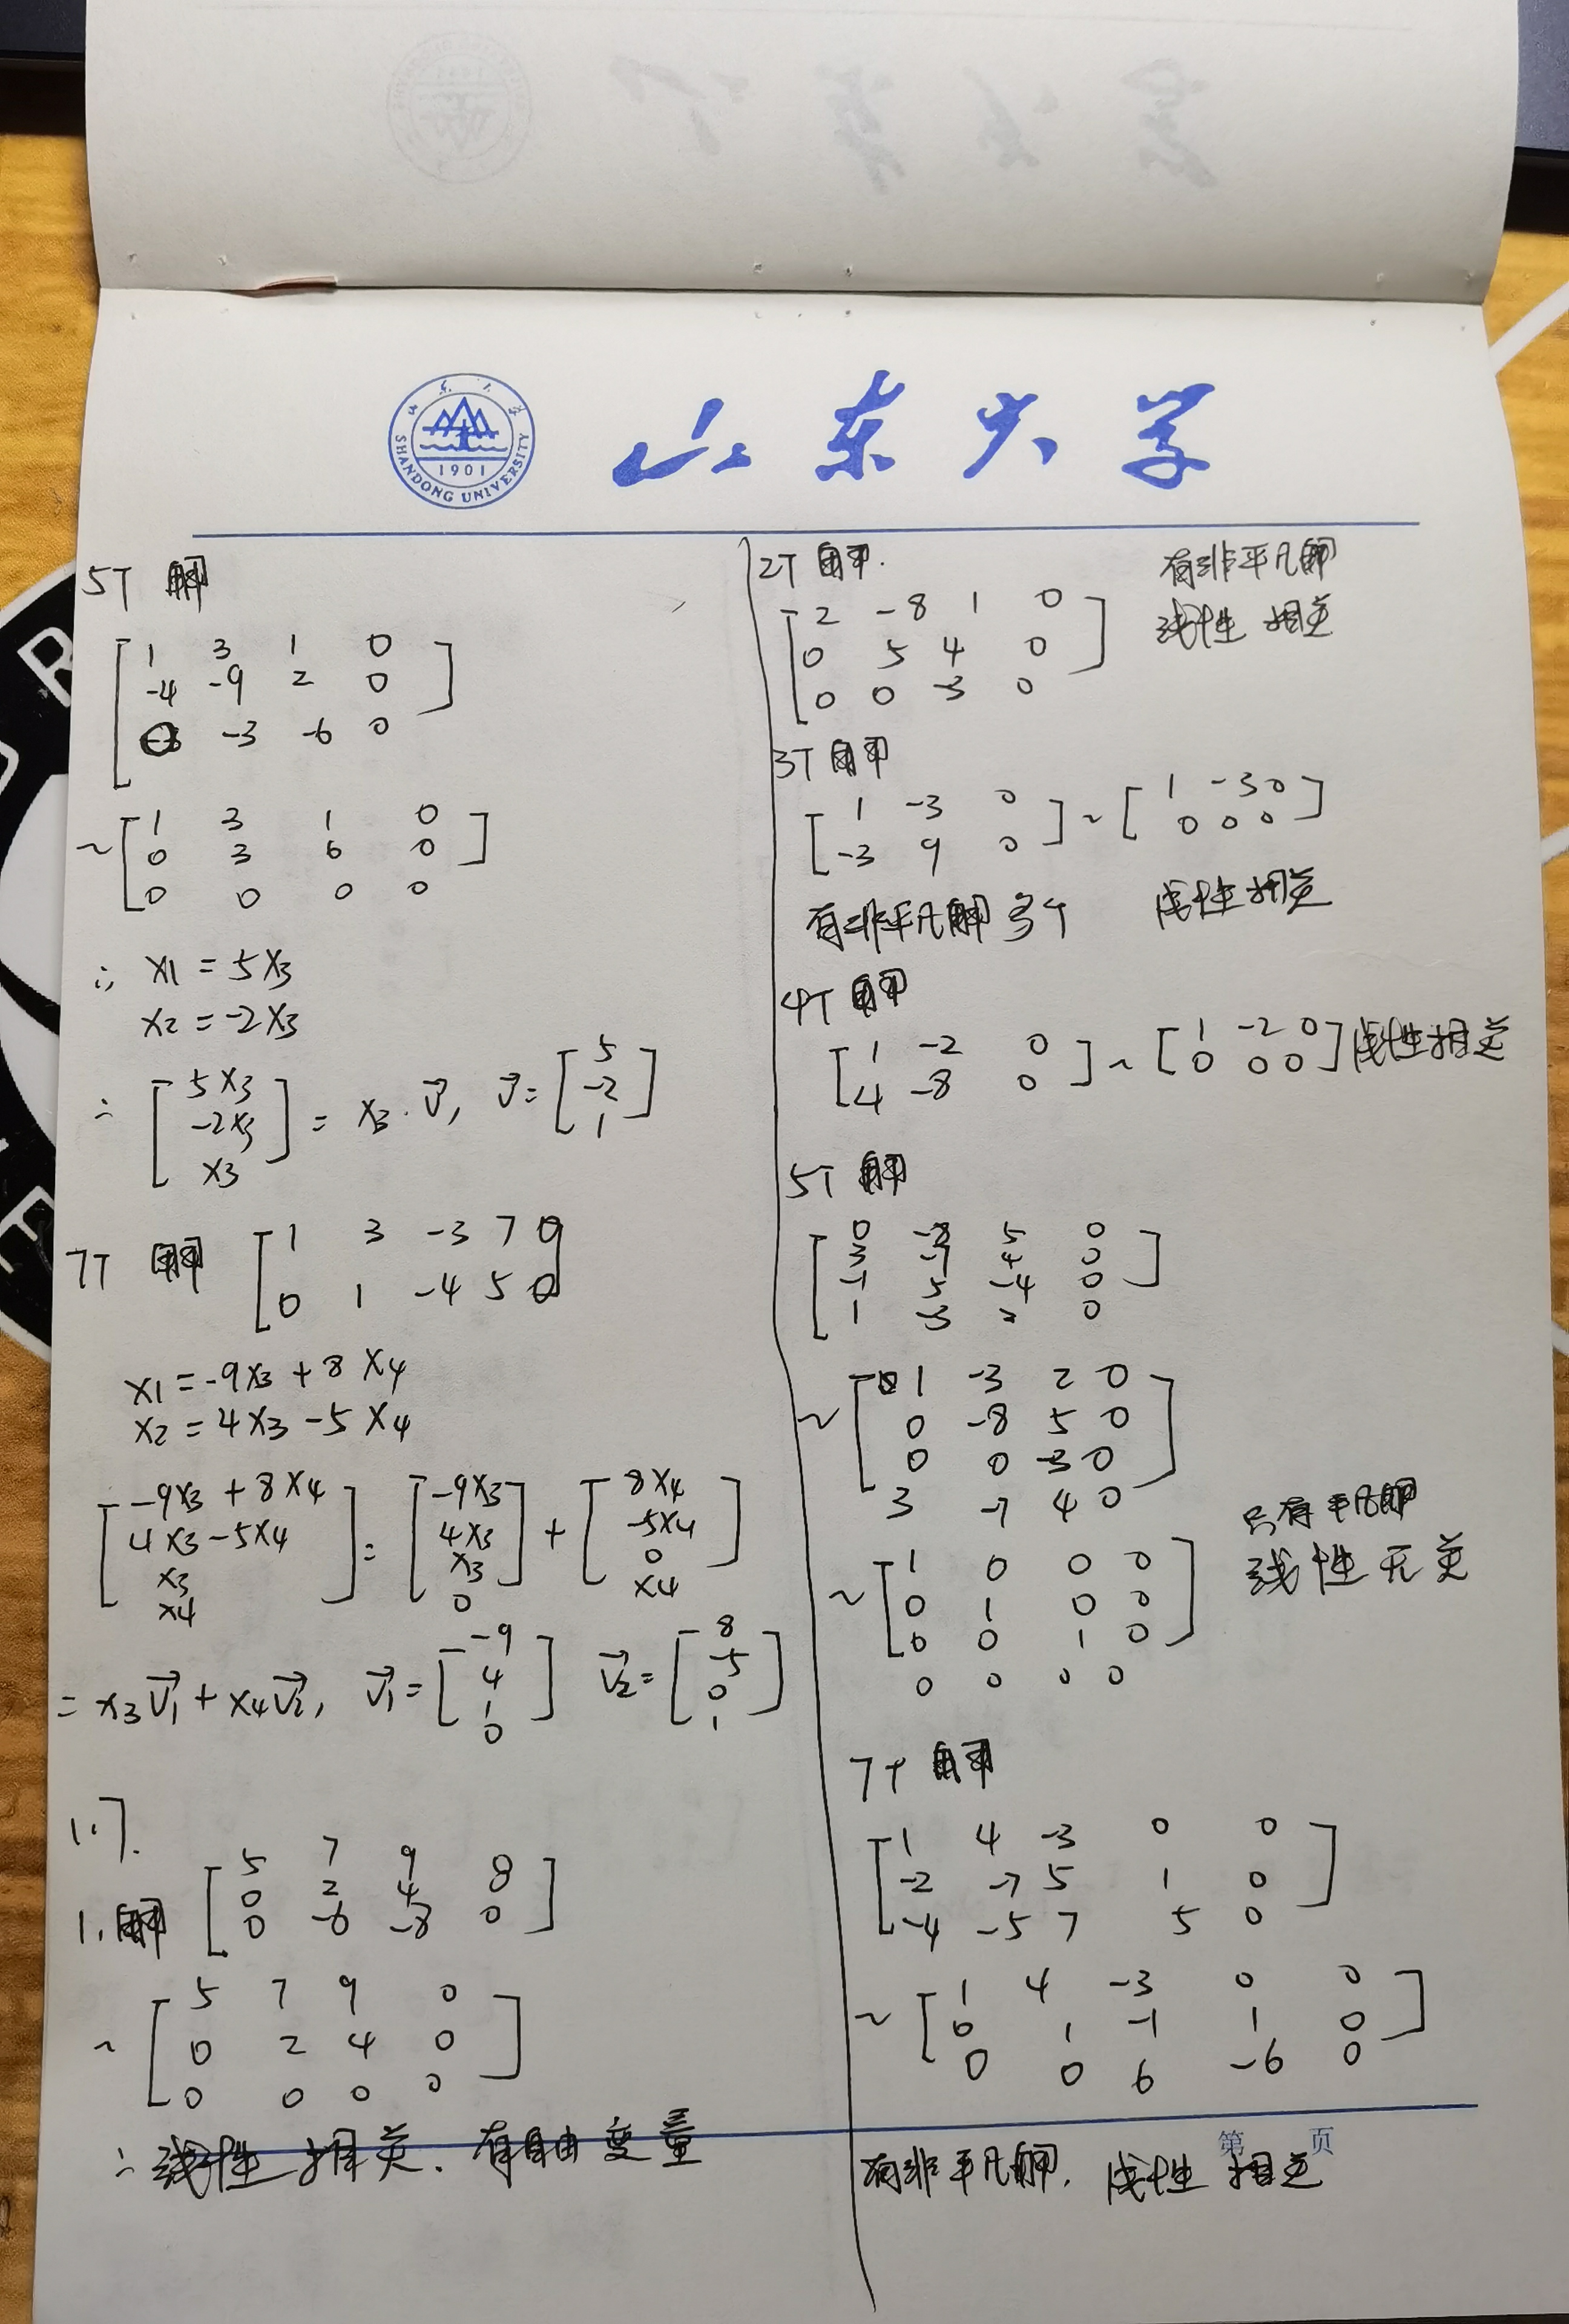 山东大学
SHANDONG UNIVERSITY
1901
5T 解
1 3 1 0
-4 -9 2 0
0 -3 -6 0
~ 1 3 1 0
0 3 6 0
0 0 0 0
∴ x1 = 5x3
x2 = -2x3
∴ [5x3 -2x3 x3] = x3·v⃗, v⃗ = [5 -2 1]
7T 解 1 3 -3 7 0
0 1 -4 5 0
x1 = -9x3 + 8x4
x2 = 4x3 - 5x4
[-9x3 + 8x4 4x3 - 5x4 x3 x4] = [-9x3 4x3 x3 0] + [8x4 -5x4 0 x4]
= x3v⃗1 + x4v⃗2, v⃗1 = [-9 4 1 0] v⃗2 = [8 -5 0 1]
1.7.
1.解 5 7 9 0
0 2 4 0
0 -6 -8 0
~ 5 7 9 0
0 2 4 0
0 0 0 0
∴ 线性相关. 有自由变量
2T 解. 有非平凡解
2 -8 1 0 线性相关
0 5 4 0
0 0 -3 0
3T 解
[1 -3 0 ~ [1 -3 0
-3 9 0] 0 0 0]
有非平凡解多个 线性相关
4T 解
[1 -2 0 ~ [1 -2 0
4 -8 0] 0 0 0] 线性相关
5T 解
0 -8 5 0
3 -7 4 0
-1 5 -4 0
1 -3 2 0
~ 1 -3 2 0
0 -8 5 0
0 0 -3 0
3 -7 4 0 只有平凡解
~ 1 0 0 0 线性无关
0 1 0 0
0 0 1 0
0 0 0 0
7T 解
1 4 -3 0 0
-2 -7 5 1 0
-4 -5 7 5 0
~ 1 4 -3 0 0
0 1 -1 1 0
0 0 6 -6 0
有非平凡解. 线性相关
第 页